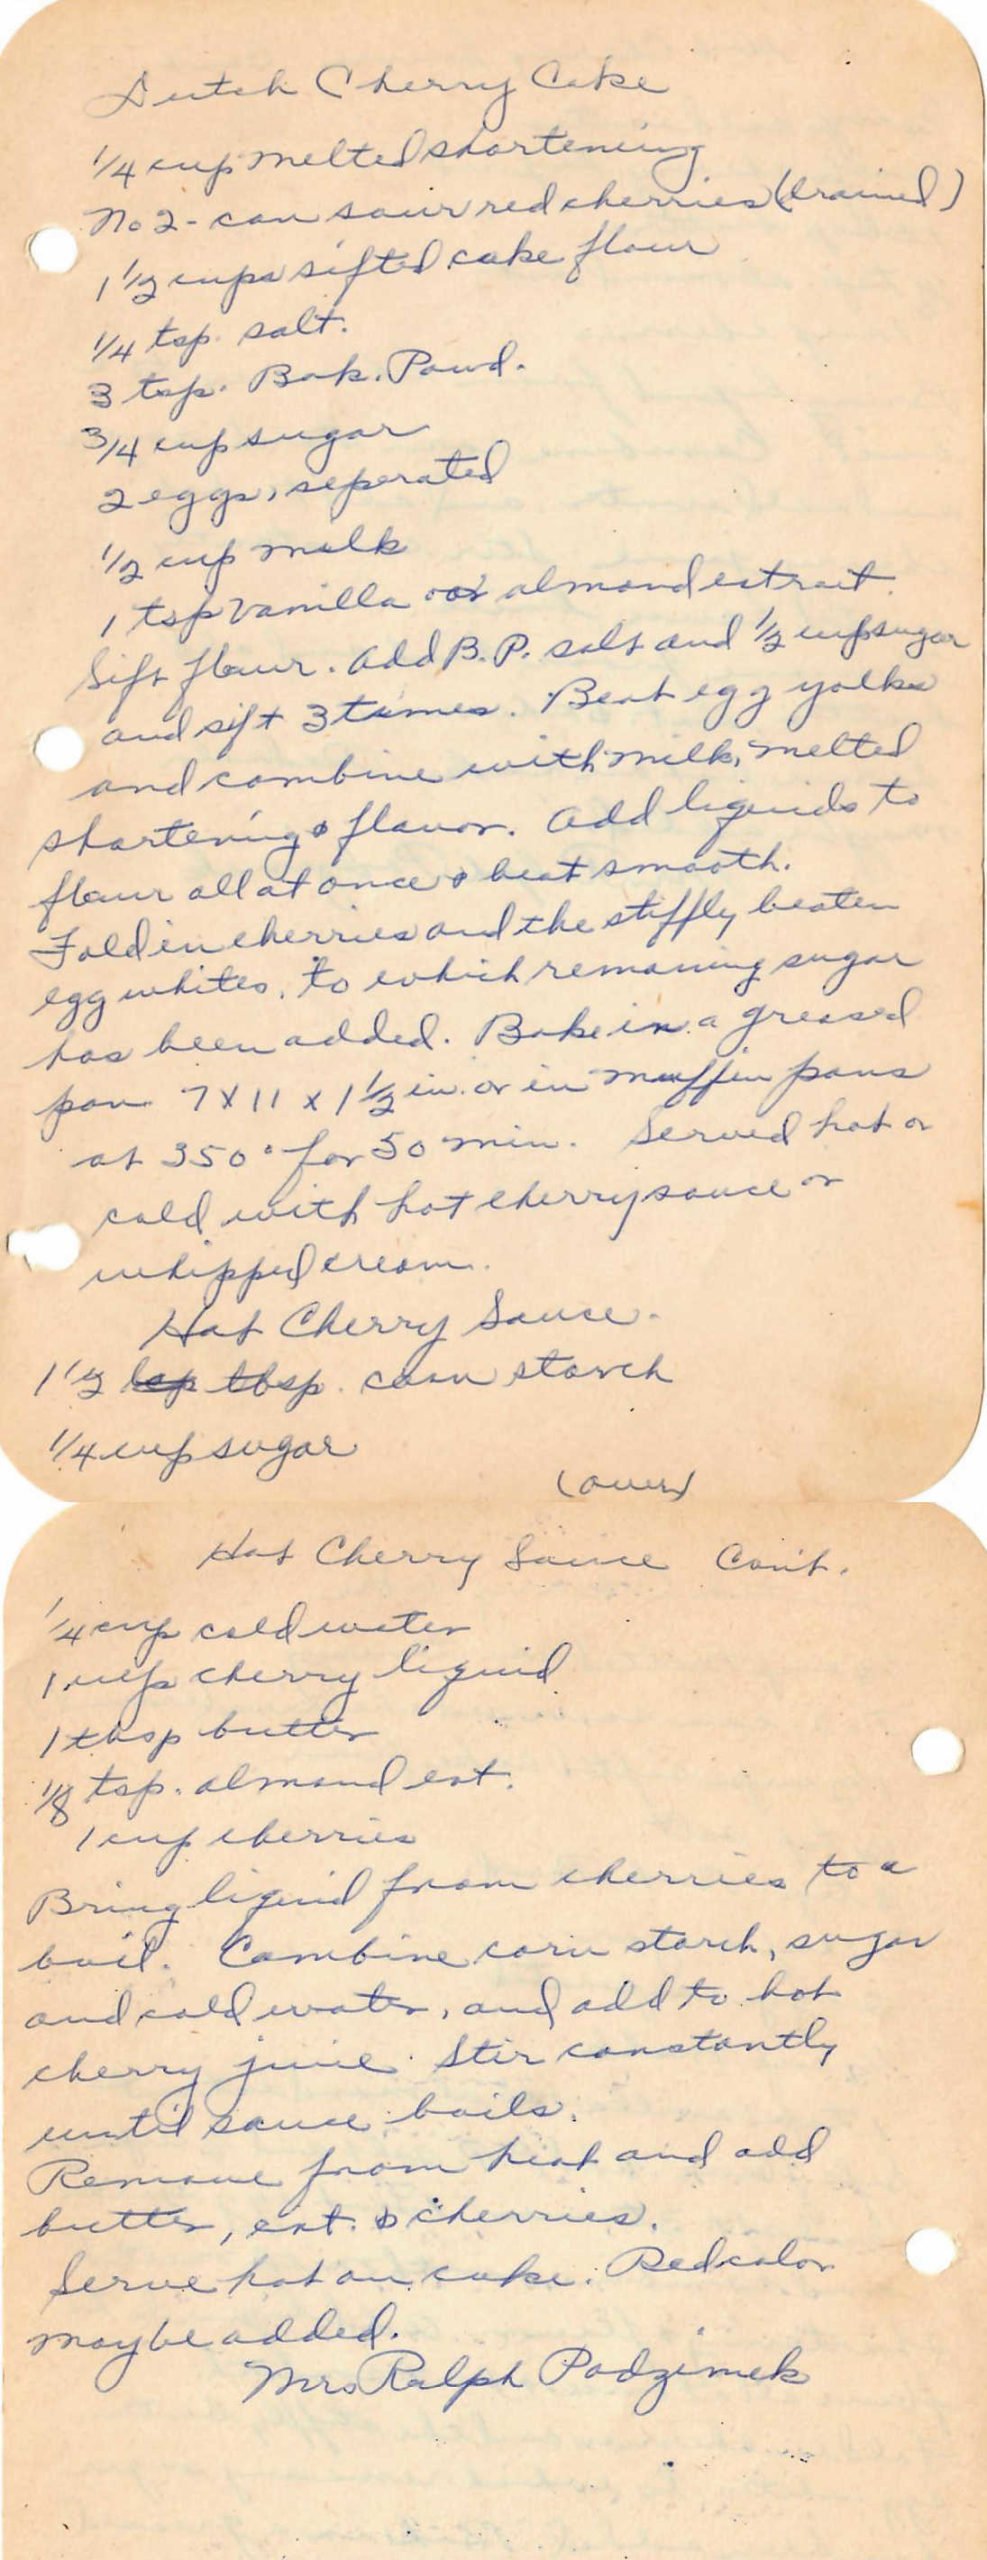 Dutch Cherry Cake
1/4 cup melted shortening
No 2 - can sour red cherries (drained)
1 1/2 cups sifted cake flour
1/4 tsp. salt.
3 tsp. Bak. Powd.
3/4 cup sugar
2 eggs, seperated
1/2 cup milk
1 tsp vanilla or almond extrait.
Sift flour. Add B.P. salt and 1/2 cup sugar
and sift 3 times. Beat egg yolks
and combine with milk, melted
shortening & flavor. Add liquids to
flour all at once & beat smooth.
Fold in cherries and the stiffly beaten
egg whites, to which remaining sugar
has been added. Bake in a greased
pan 7 x 11 x 1 1/2 in. or in muffin pans
at 350° for 50 min. Served hot or
cold with hot cherry sauce or
whipped cream.
Hot Cherry Sauce.
1 1/2 tbsp. corn starch
1/4 cup sugar
(over)
Hot Cherry Sauce Cont.
1/4 cup cold water
1 cup cherry liquid
1 tbsp butter
1/8 tsp. almond ext.
1 cup cherries
Bring liquid from cherries to a
boil. Combine corn starch, sugar
and cold water, and add to hot
cherry juice. Stir constantly
until sauce boils.
Remove from heat and add
butter, ext. & cherries.
Serve hot on cake. Red color
may be added.
Mrs Ralph Podzimek